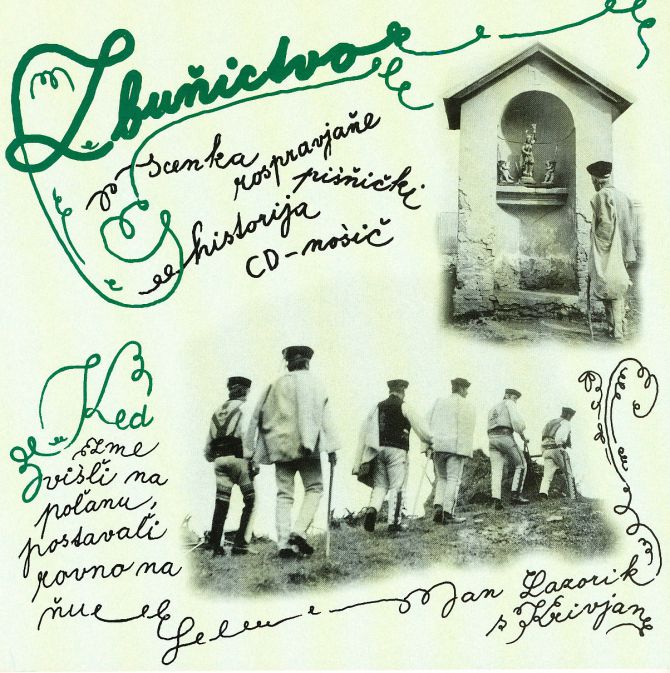 Zbuňictvo
Scenka
rospravjaňe
pišňički
historija
CD-nošič
Ked
zme
višľi na
poľanu,
postavaľi
rovno na
ňu
Jan Lazorik
s Krivjan